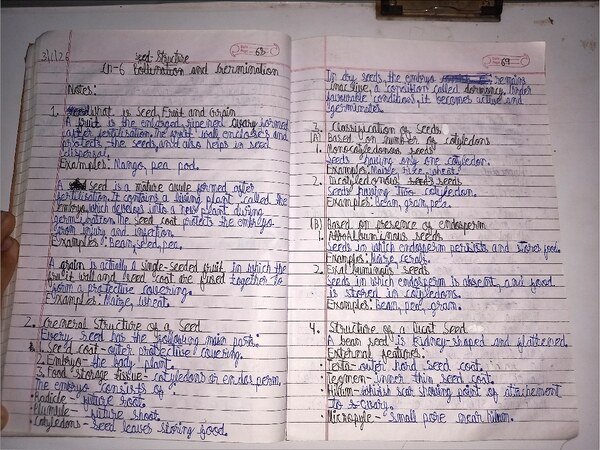 3/1/26
Seed-Structure
Ch-6 and Germination
Notes:
68
1. What is Seed, Fruit and Grain
A fruit is the enlarged ripened Ovary formed
after fertilisation. The fruit wall encloses and
protects the seeds and also helps in seed
dispersal.
Examples: Mango, pea pod.
A Seed is a mature ovule formed after
fertilisation. It contains a living plant called the
embryo, which develops into a new plant during
germination. The seed coat protects the embryo
from injury and infection.
Examples: Bean, seed, pea.
A grain is actually a single-seeded fruit in which the
fruit wall and seed coat are fused together to
form a protective covering.
Examples: Maize, wheat.
2. General Structure of a Seed
Every seed has the following main parts:
1. Seed coat - outer protective covering.
2. Embryo - the baby plant.
3. Food storage tissue - cotyledons or endosperm.
The embryo consists of:
• Radicle - future root.
• Plumule - future shoot.
• Cotyledons - Seed leaves storing food.
69
In dry seeds, the embryo remains
inactive, a condition called dormancy. Under
favourable conditions, it becomes active and
germinates.
3. Classification of Seeds
(A) Based on number of cotyledons
1. Monocotyledonous seeds
Seeds having only one cotyledon.
Examples: Maize, rice, wheat.
2. Dicotyledonous seeds
Seeds having two cotyledon.
Examples: Bean, gram, pea.
(B) Based on presence of endosperm
1. Albuminous seeds
Seeds in which endosperm persists and stores food.
Examples: Maize,
2. Exalbuminous seeds
Seeds in which endosperm is absent, and food
is stored in cotyledons.
Examples: Bean, pea, gram.
4. Structure of a Seed
A bean seed is kidney-shaped and flattened.
External features:
• Testa - outer hard seed coat.
• Tegmen - inner thin seed coat.
• Hilum - scar showing point of attachement
to
• Micropyle - Small pore near hilum.